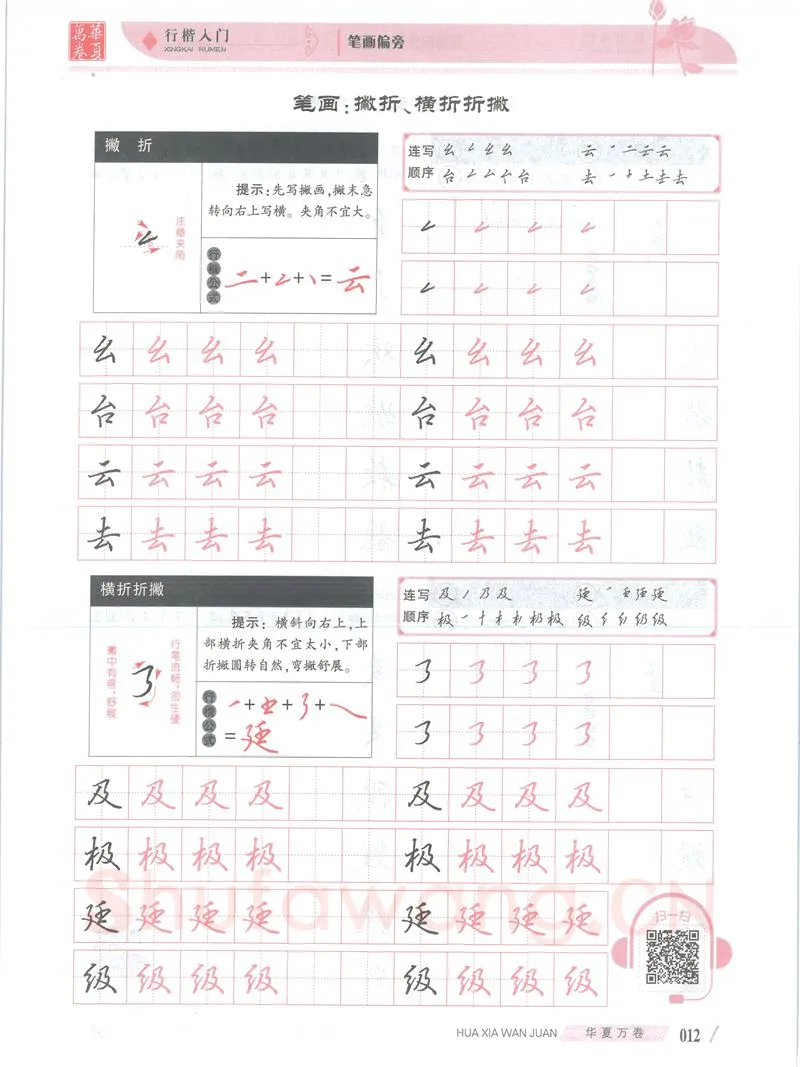 華夏
萬卷
行楷入门
XINGKAI RUMEN
笔画偏旁
笔画：撇折、横折折撇
撇 折
注意夹角
提示：先写撇画，撇末急
转向右上写横。夹角不宜大。
行楷公式
二+𠃋+丶=云
连写
顺序
幺 幺 幺
云 一 二 云 云
台 台
去 一 十 土 去 去
幺 幺 幺 幺 幺 幺 幺 幺
台 台 台 台 台 台 台 台
云 云 云 云 云 云 云 云
去 去 去 去 去 去 去 去
横折折撇
撇中有弯，舒展
行笔流畅，勿生硬
提示：横斜向右上，上
部横折夹角不宜太小，下部
折撇圆转自然，弯撇舒展。
行楷公式
=廷
连写
顺序
及 丿 乃 及
廷 廷 廷
极 一 十 才 极 极
级 级 级
及 及 及 及 及 及 及 及
极 极 极 极 极 极 极 极
廷 廷 廷 廷 廷 廷 廷 廷
级 级 级 级 级 级 级 级
Shufawang.CN
扫一扫
HUA XIA WAN JUAN
华夏万卷
012